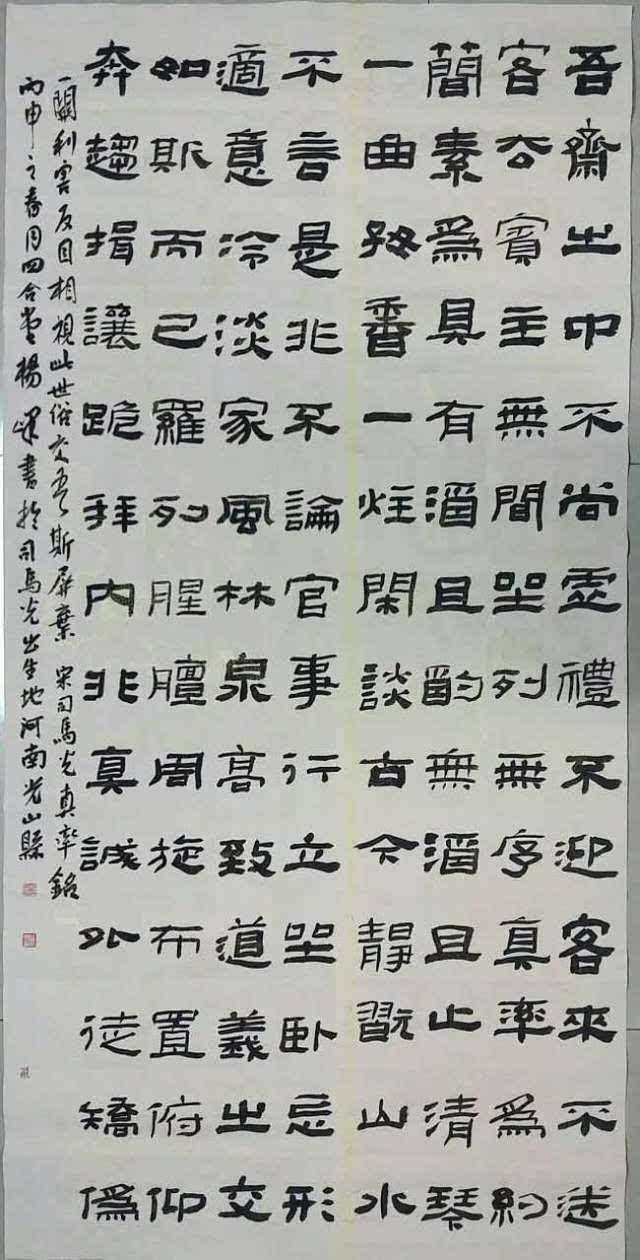 吾齋之中不尚虛禮不迎客來不送
客去賓主無間坐列無序真率爲約
簡素爲具有酒且酌無酒且止清琴
一曲好香一炷閑談古今靜翫山水
不言是非不論官事行立坐臥忘形
適意冷淡家風林泉高致道義之交
如斯而已羅列腥膻周旋布置俯仰
奔趨揖讓跪拜內非真誠外徒矯僞
一關利害反目相視此世俗交吾斯屏棄 宋司馬光真率銘
丙申之春月四合堂楊書於司馬光出生地河南光山縣